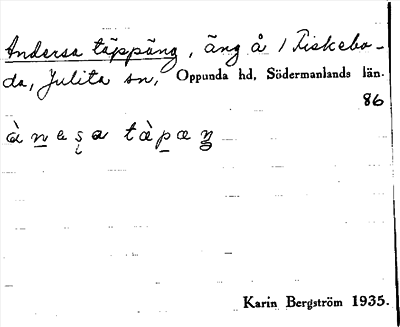 Andersa täppäng, äng å 1 Fiskebo-
da, Julita sn, Oppunda hd, Södermanlands län.
86
àn̲eṣa tàp̲æŋ
Karin Bergström 1935.